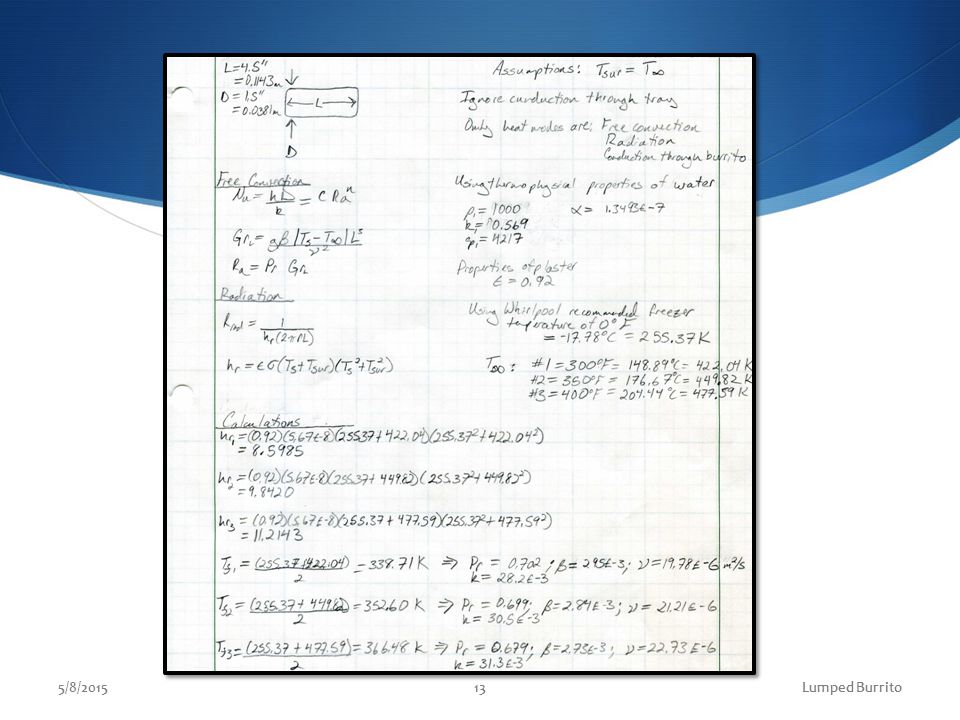 L=4.5"
= 0.1143m
D = 1.5"
= 0.0381m
L
D
Assumptions: Tsur = T∞
Ignore conduction through tray
Only heat modes are: Free convection
Radiation
Conduction through burrito
Free Convection
Nu = hL/k = C Ra^n
GrL = gβ|Ts-T∞|L³/ν²
Ra = Pr GrL
Using thermophysical properties of water
ρ1 = 1000 α = 1.3493E-7
k1 = 0.569
cp1 = 4217
Properties of plaster
ε = 0.92
Radiation
Rrad = 1/(hr(2πRL))
hr = εσ(Ts+Tsur)(Ts²+Tsur²)
Using Whirlpool recommended freezer
temperature of 0°F
= -17.78°C = 255.37K
T∞: #1 = 300°F = 148.89°C = 422.04 K
#2 = 350°F = 176.67°C = 449.82 K
#3 = 400°F = 204.44°C = 477.59 K
Calculations
hr1 = (0.92)(5.67E-8)(255.37+422.04)(255.37²+422.04²)
= 8.5985
hr2 = (0.92)(5.67E-8)(255.37+449.82)(255.37²+449.82²)
= 9.8420
hr3 = (0.92)(5.67E-8)(255.37+477.59)(255.37²+477.59²)
= 11.2143
Tf1 = (255.37+422.04)/2 = 338.71 K ⇒ Pr = 0.702; β = 2.95E-3; ν = 19.78E-6 m²/s
k = 28.2E-3
Tf2 = (255.37+449.82)/2 = 352.60 K ⇒ Pr = 0.699; β = 2.84E-3; ν = 21.21E-6
k = 30.5E-3
Tf3 = (255.37+477.59)/2 = 366.48 K ⇒ Pr = 0.679; β = 2.73E-3; ν = 22.73E-6
k = 31.3E-3
5/8/2015
13
Lumped Burrito